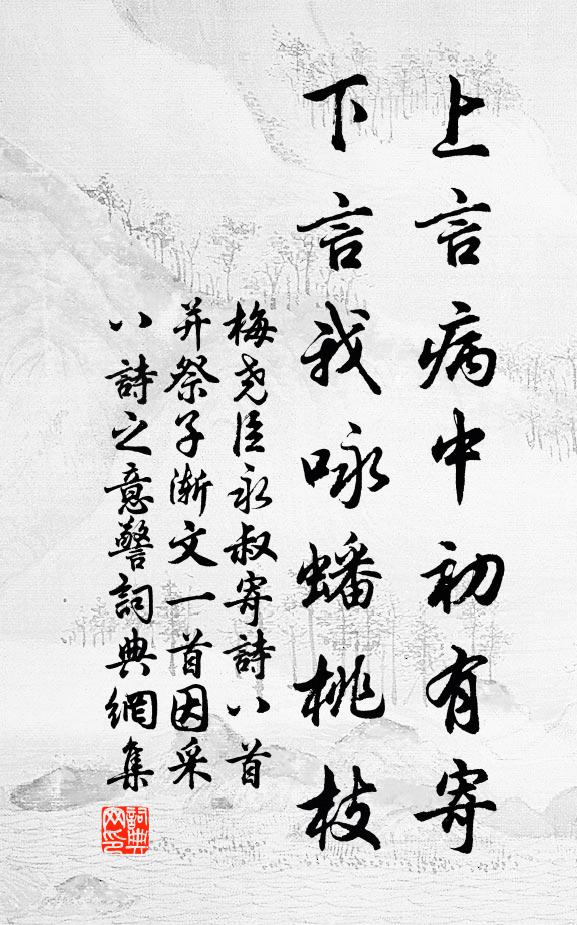 上言病中初有寄
下言我咏蟠桃枝
梅尧臣永叔寄詩八首
并祭子漸文一首因采
八詩之意警詞典網集
詞典